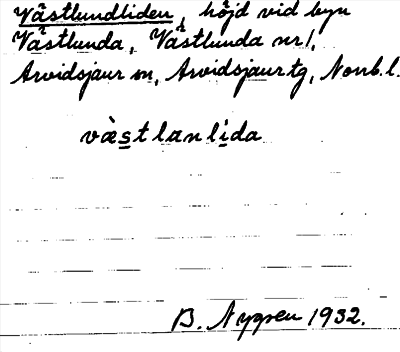 Västlundliden, höjd vid byn
Västlunda, Västlunda nr 1,
Arvidsjaur sn, Arvidsjaur tg, Norrb. l.
vàstlanlida
B. Nygren 1932.